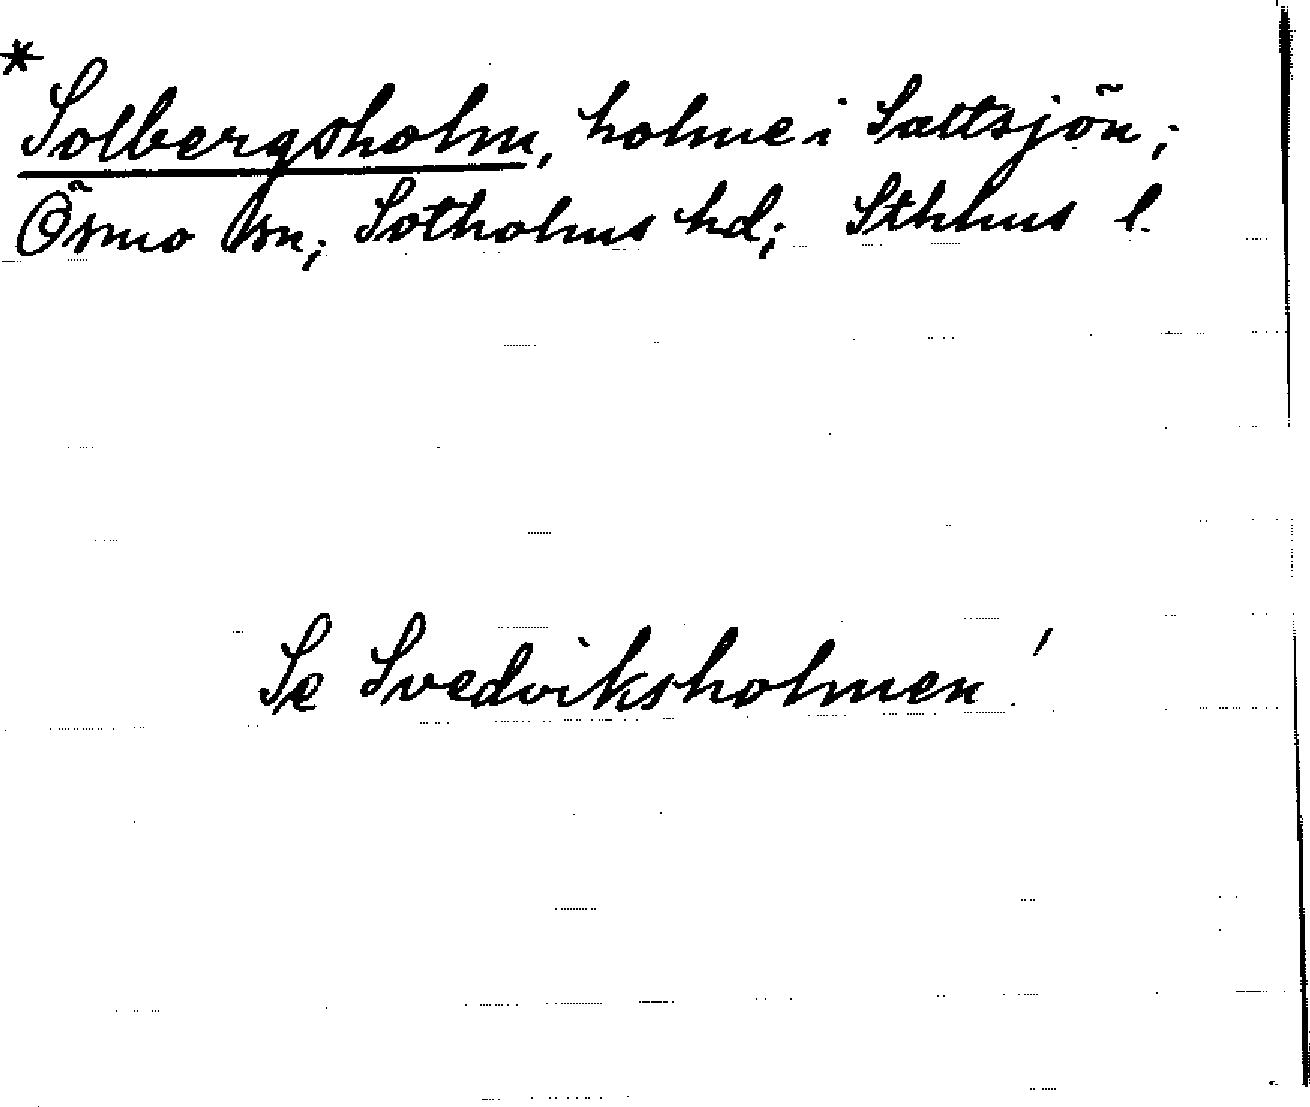 *
Solbergsholm, holme i Saltsjön;
Ösmo sn; Sotholms hd; Sthlms l.
Se Svedviksholmen!